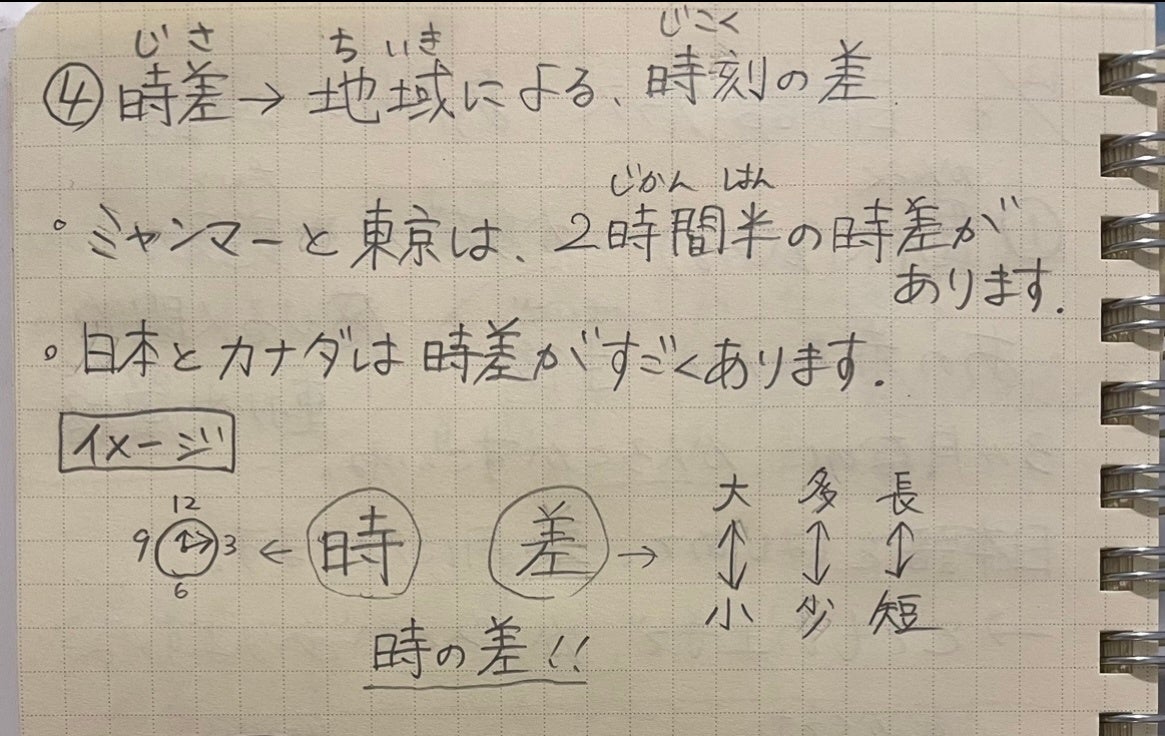 じさ ちいき じこく
④時差→地域による、時刻の差
じかん はん
。ミャンマーと東京は、2時間半の時差が
あります.
。日本とカナダは時差がすごくあります.
イメージ
12 大 多 長
9 3 ← 時 差 → ↕ ↕ ↕
6 小 少 短
時の差!!